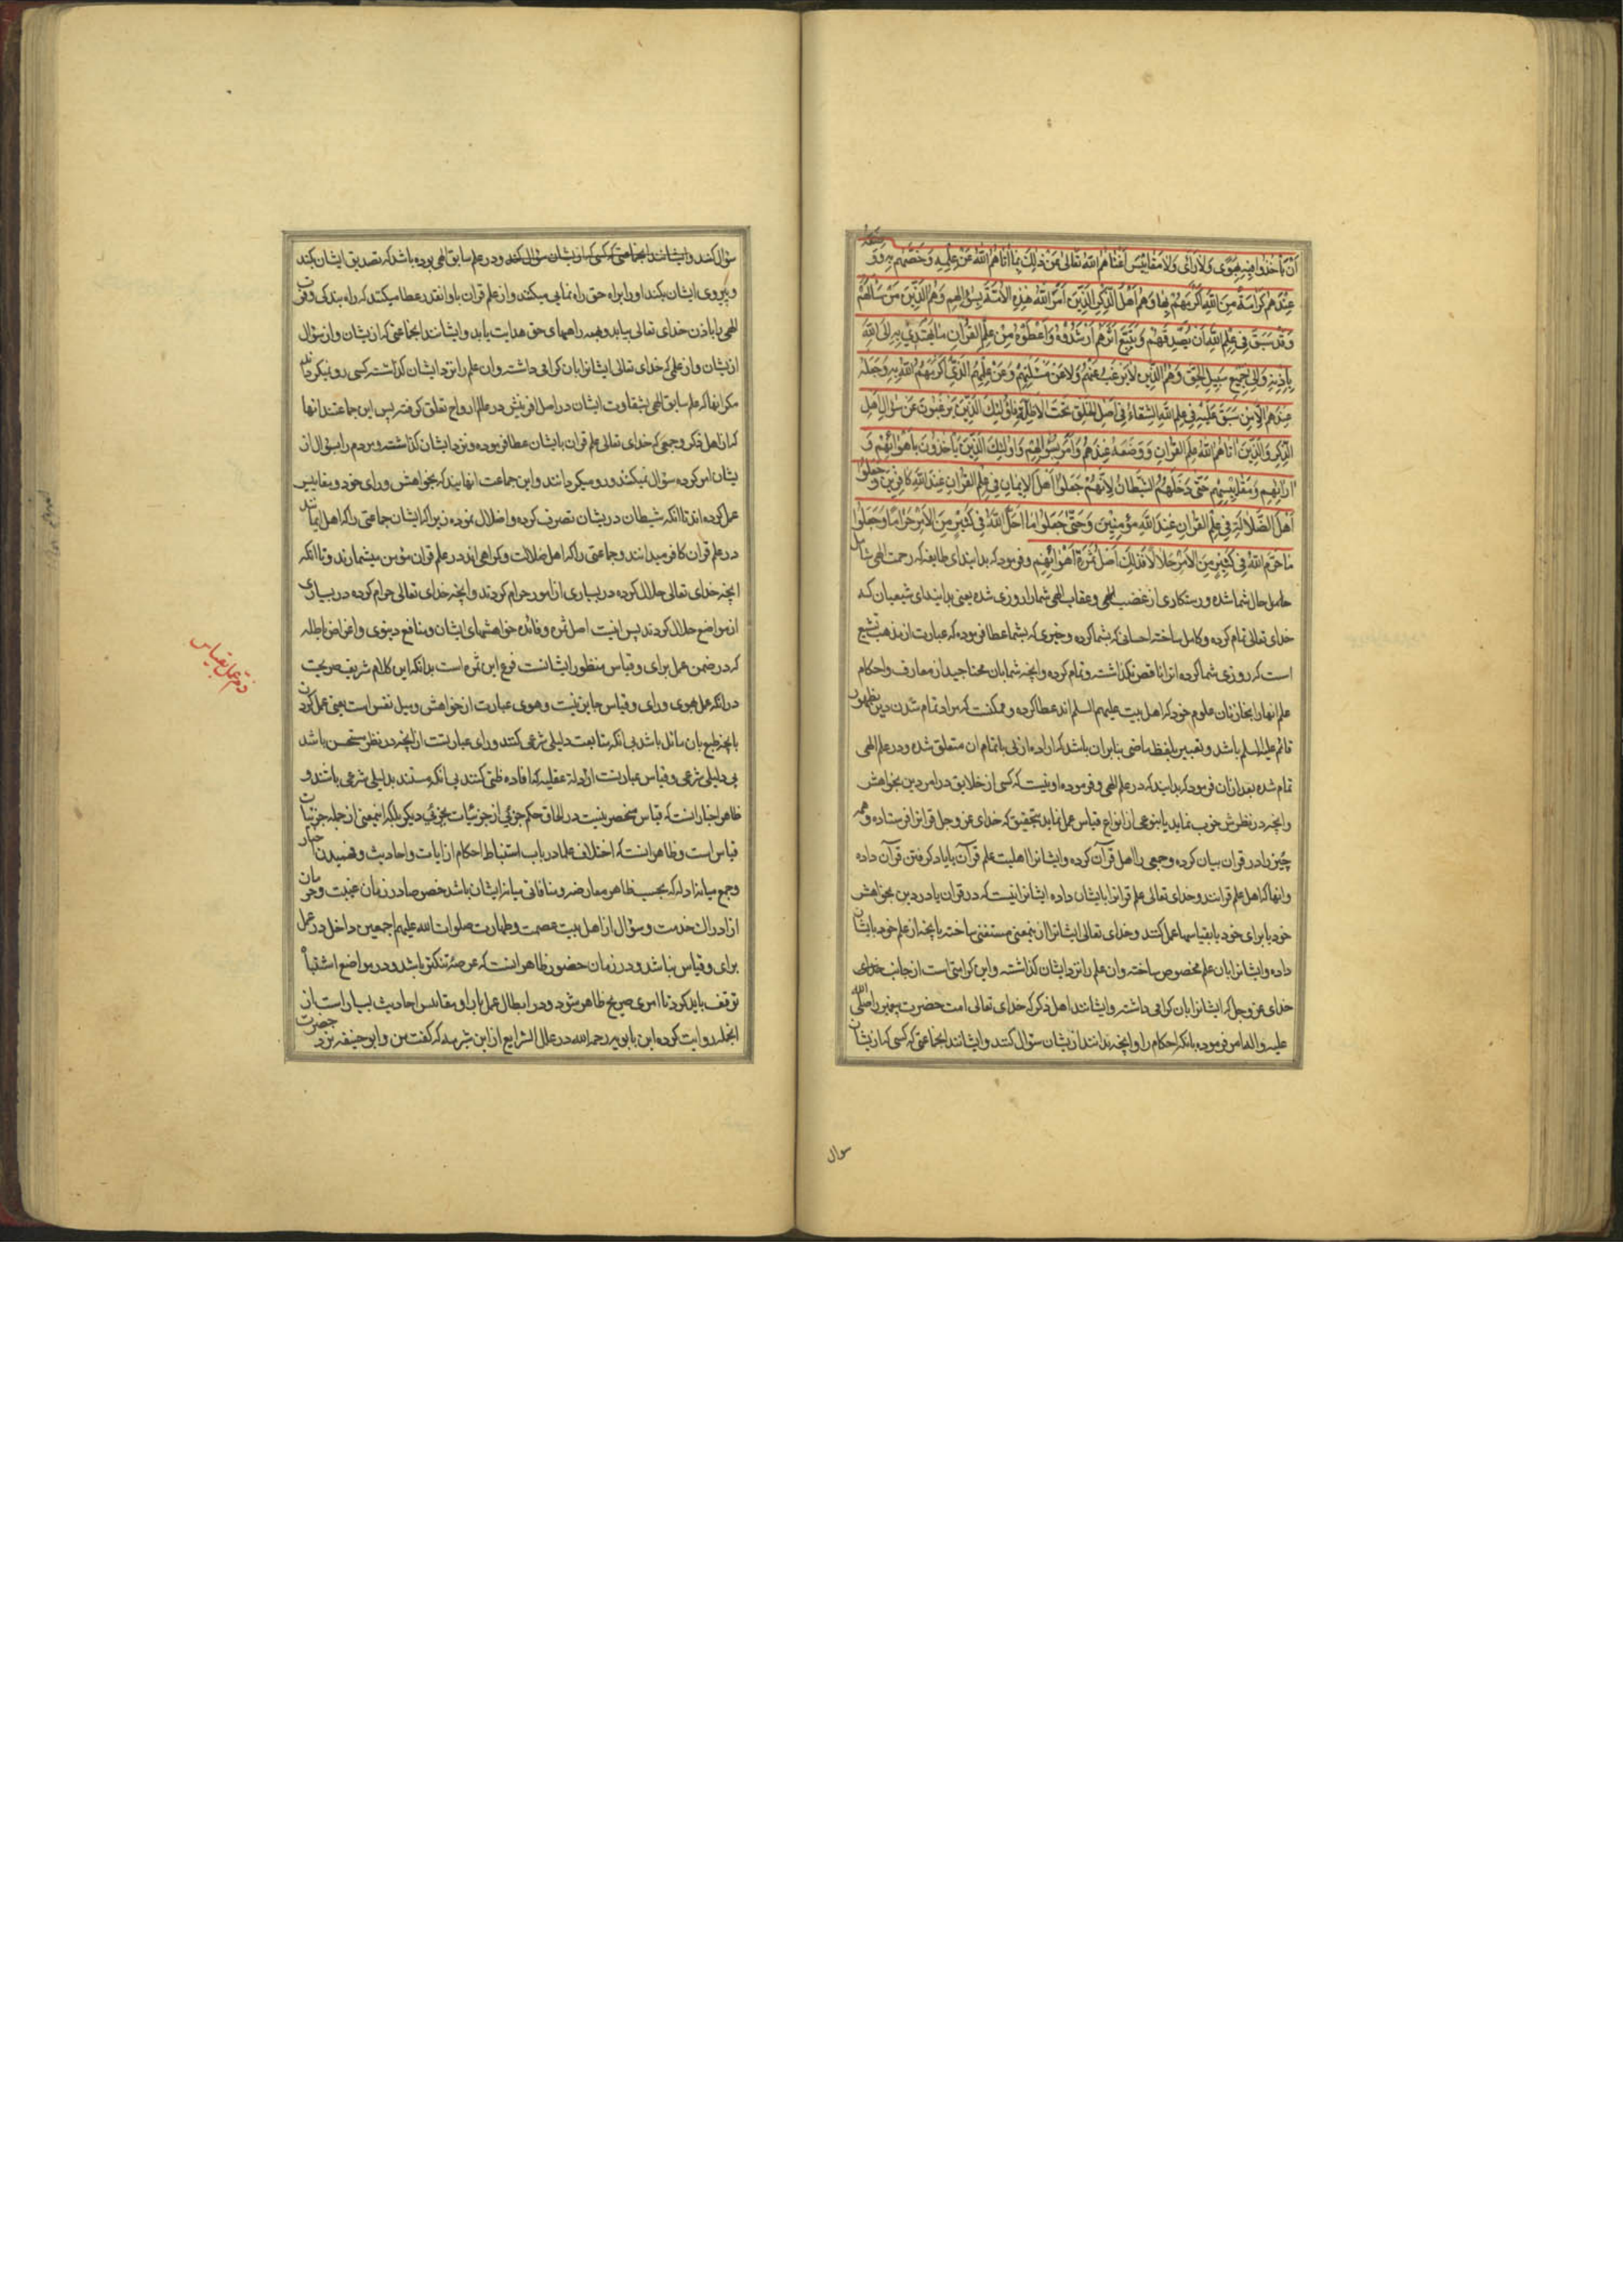 أَنْ يَأْخُذُوا فِيهِ بِهَوًى وَلَا رَأْىٍ وَلَا مَقَايِيسَ أَغْنَاهُمُ اللّٰهُ تَعَالَىٰ عَنْ ذٰلِكَ بِمَا أَتَاهُمُ اللّٰهُ مِنْ عِلْمِهِ وَخَصَّهُمْ بِهِ وَوَضَعَهُ
عِنْدَهُمْ كَرَامَةً مِنَ اللّٰهِ أَكْرَمَهُمْ بِهَا وَهُمْ أَهْلُ الذِّكْرِ الَّذِينَ أَمَرَ اللّٰهُ هٰذِهِ الْأُمَّةَ بِسُؤَالِهِمْ وَهُمُ الَّذِينَ مَنْ سَأَلَهُمْ
وَقَدْ سَبَقَ فِي عِلْمِ اللّٰهِ أَنْ يُصَدِّقَهُمْ وَيَتَّبِعَ أَثَرَهُمْ أَرْشَدُوهُ وَأَعْطَوْهُ مِنْ عِلْمِ الْقُرْآنِ مَا يَهْتَدِي بِهِ إِلَى اللّٰهِ
بِإِذْنِهِ وَإِلَى جَمِيعِ سَبِيلِ الْحَقِّ وَهُمُ الَّذِينَ لَا يَرْغَبُ عَنْهُمْ وَلَا عَنْ مَسْئَلَتِهِمْ وَعَنْ عِلْمِهِمُ الَّذِي أَكْرَمَهُمُ اللّٰهُ بِهِ وَجَعَلَهُ
عِنْدَهُمْ إِلَّا مَنْ سَبَقَ عَلَيْهِ فِي عِلْمِ اللّٰهِ الشَّقَاءُ فِي أَصْلِ الْخَلْقِ تَحْتَ الْأَظِلَّةِ فَأُولٰئِكَ الَّذِينَ يَرْغَبُونَ عَنْ سُؤَالِ أَهْلِ
الذِّكْرِ وَالَّذِينَ آتَاهُمُ اللّٰهُ عِلْمَ الْقُرْآنِ وَوَضَعَهُ عِنْدَهُمْ وَأَمَرَ بِسُؤَالِهِمْ وَأُولٰئِكَ الَّذِينَ يَأْخُذُونَ بِأَهْوَائِهِمْ وَ
آرَائِهِمْ وَمَقَايِيسِهِمْ حَتَّى دَخَلَهُمُ الشَّيْطَانُ لِأَنَّهُمْ جَعَلُوا أَهْلَ الْإِيمَانِ فِي عِلْمِ الْقُرْآنِ عِنْدَ اللّٰهِ كَافِرِينَ وَجَعَلُوا
أَهْلَ الضَّلَالَةِ فِي عِلْمِ الْقُرْآنِ عِنْدَ اللّٰهِ مُؤْمِنِينَ وَحَتَّى جَعَلُوا مَا أَحَلَّ اللّٰهُ فِي كَثِيرٍ مِنَ الْأَمْرِ حَرَامًا وَجَعَلُوا
مَا حَرَّمَ اللّٰهُ فِي كَثِيرٍ مِنَ الْأَمْرِ حَلَالًا فَذٰلِكَ أَصْلُ ثَمَرَةِ أَهْوَائِهِمْ وفرمود که بدانید ای طایفه که رحمت الهی شامل
حامل حال شما شده ورستکاری از غضب الهی وعقاب الهی شما را روزی شده یعنی بدانید ای شیعیان که
خدای تعالی تمام کرده وکامل ساخته احسانی که بشما کرده وخیری که بشما عطا فرموده که عبارت از مذهب تشیع
است که روزی شما کرده انرا ناقص نگذاشته وتمام کرده وانچه شما بان محتاجید از معارف واحکام
علم انها را بخازنان علوم خود که اهل بیت علیهم السلم اند عطا کرده وممکنست که مراد تمام شدن دین بظهور
قائم علیه السلم باشد وتعبیر بلفظ ماضی بنابران باشد که اراده ازلی باتمام ان متعلق شده ودر علم الهی
تمام شده بعد ازان فرمود که بدانید که در علم الهی وفرموده او نیست که کسی از خلایق در امر دین بخواهش
وانچه در نظرش خوب نماید یا بنوعی از انواع قیاس عمل نماید بتحقیق که خدای عز وجل قرانرا فرستاده وهمه
چیز را در قران بیان کرده وجمعی را اهل قرآن کرده وایشانرا اهلیت علم قرآن یا یاد گرفتن قرآن داده
وانها که اهل علم قرانند وخدای تعالی علم قرانرا بایشان داده ایشانرا نیست که در قران یا در دین بخواهش
خود یا برای خود یا بقیاسها عمل کنند وخدای تعالی ایشانرا از ینمعنی مستغنی ساخته بانچه از علم خود بایشان
داده وایشانرا بان علم مخصوص ساخته وان علم را نزد ایشان گذاشته واین کرامتی است از جانب خدای
خدای عز وجل که ایشانرا بان گرامی داشته وایشانند اهل ذکر که خدای تعالی امت حضرت پیغمبر را صلی الله
علیه واله امر فرموده بانکه احکام را وانچه ندانند از یشان سؤال کنند وایشانند انجماعتی که کسی که از یشان
سوال
سؤال کند وایشانند انجماعتی که کسی که از یشان سؤال کند ودر علم سابق الهی بوده باشد که تصدیق ایشان کند
وپیروی ایشان بکند او را براه حق راه نمایی میکنند واز علم قران باو انقدر عطا میکنند که راه بندگی وقرب
الهی باذن خدای تعالی بیابد وبهمه راههای حق هدایت یابد وایشانند انجماعتی که از یشان واز سؤال
از یشان واز علمی که خدای تعالی ایشانرا بان گرامی داشته وان علم را نزد ایشان گذاشته کسی رو نمیگرداند
مگر انها که علم سابق الهی بشقاوت ایشان در اصل افرینش در عالم ارواح تعلق گرفته پس این جماعتند انها
که از اهل ذکر وجمعی که خدای تعالی علم قران بایشان عطا فرموده ونزد ایشان گذاشته ومردم را بسؤال از
یشان امر کرده سؤال نمیکنند ورو میگردانند واین جماعت انهایند که بخواهش ورای خود ومقاییس
عمل کرده اند تا انکه شیطان در یشان تصرف کرده واضلال نموده زیرا که ایشان جماعتی را که اهل ایمانند
در علم قران کافر میدانند وجماعتی را که اهل ضلالت وگمراهی اند در علم قران مؤمن میشمارند وتا انکه
انچه خدای تعالی حلال کرده در بسیاری از امور حرام کردند وانچه خدای تعالی حرام کرده در بسیاری
از مواضع حلال کردند پس اینست اصل ثمره وفائده خواهشهای ایشان ومنافع دینوی واغراض باطله
که در ضمن عمل برای وقیاس منظور ایشانست فرع این ثمره است بدانکه این کلام شریف صریحست
در انکه عمل بهوی ورای وقیاس جایز نیست وهوی عبارت از خواهش ومیل نفس است یعنی عمل کردن
بانچه طبع بان مائل باشد بی انکه متابعت دلیلی شرعی کنند ورای عبارتست از انچه در نظر مستحسن باشد
بی دلیلی شرعی وقیاس عبارتست از ادله عقلیه که افاده ظنی کنند بی انکه مستند بدلیلی شرعی باشند و
ظاهر اخبار انست که قیاس منحصر نیست در الحاق حکم جزئی از جزئیات بجزئی دیگر بلکه اینمعنی از جمله جزئیات
قیاس است وظاهر انست که اختلاف علما در باب استنباط احکام از ایات واحادیث وفهمیدن اخبار
وجمع میانه ادله که بحسب ظاهر معارضه ومنافاتی میانه ایشان باشد خصوصا در زمان غیبت وحرمان
از ادراک خدمت وسؤال از اهل بیت عصمت وطهارت صلوات الله علیهم اجمعین داخل در عمل
برای وقیاس نباشد ودر زمان حضور ظاهر اینست که عرصه تنگتر باشد ودر مواضع اشتباه
توقف باید کرد تا امری صریح ظاهر شود ودر ابطال عمل برای ومقائس احادیث بسیار است از
انجمله روایت کرده ابن بابویه رحمه الله در علل الشرایع از ابن شبرمه که گفت من وابو حنیفه نزد حضرت